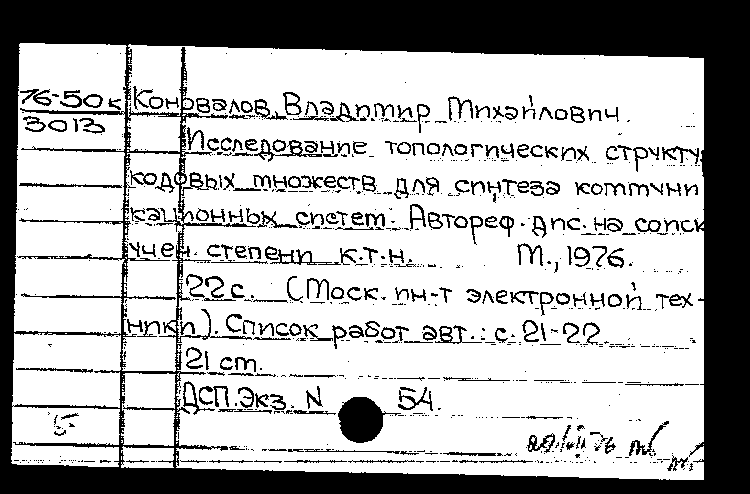 76-50к Коновалов, Владимир Михайлович.
3013
Исследование топологических структу
кодовых множеств для синтеза коммуни
кационных систем. Автореф. дис. на соиск
учен. степени к.т.н. М., 1976.
22 с. (Моск. ин-т электронной тех-
ники). Список работ авт.: с. 21-22.
21 cm.
ДСП. Экз. N 54.
5-